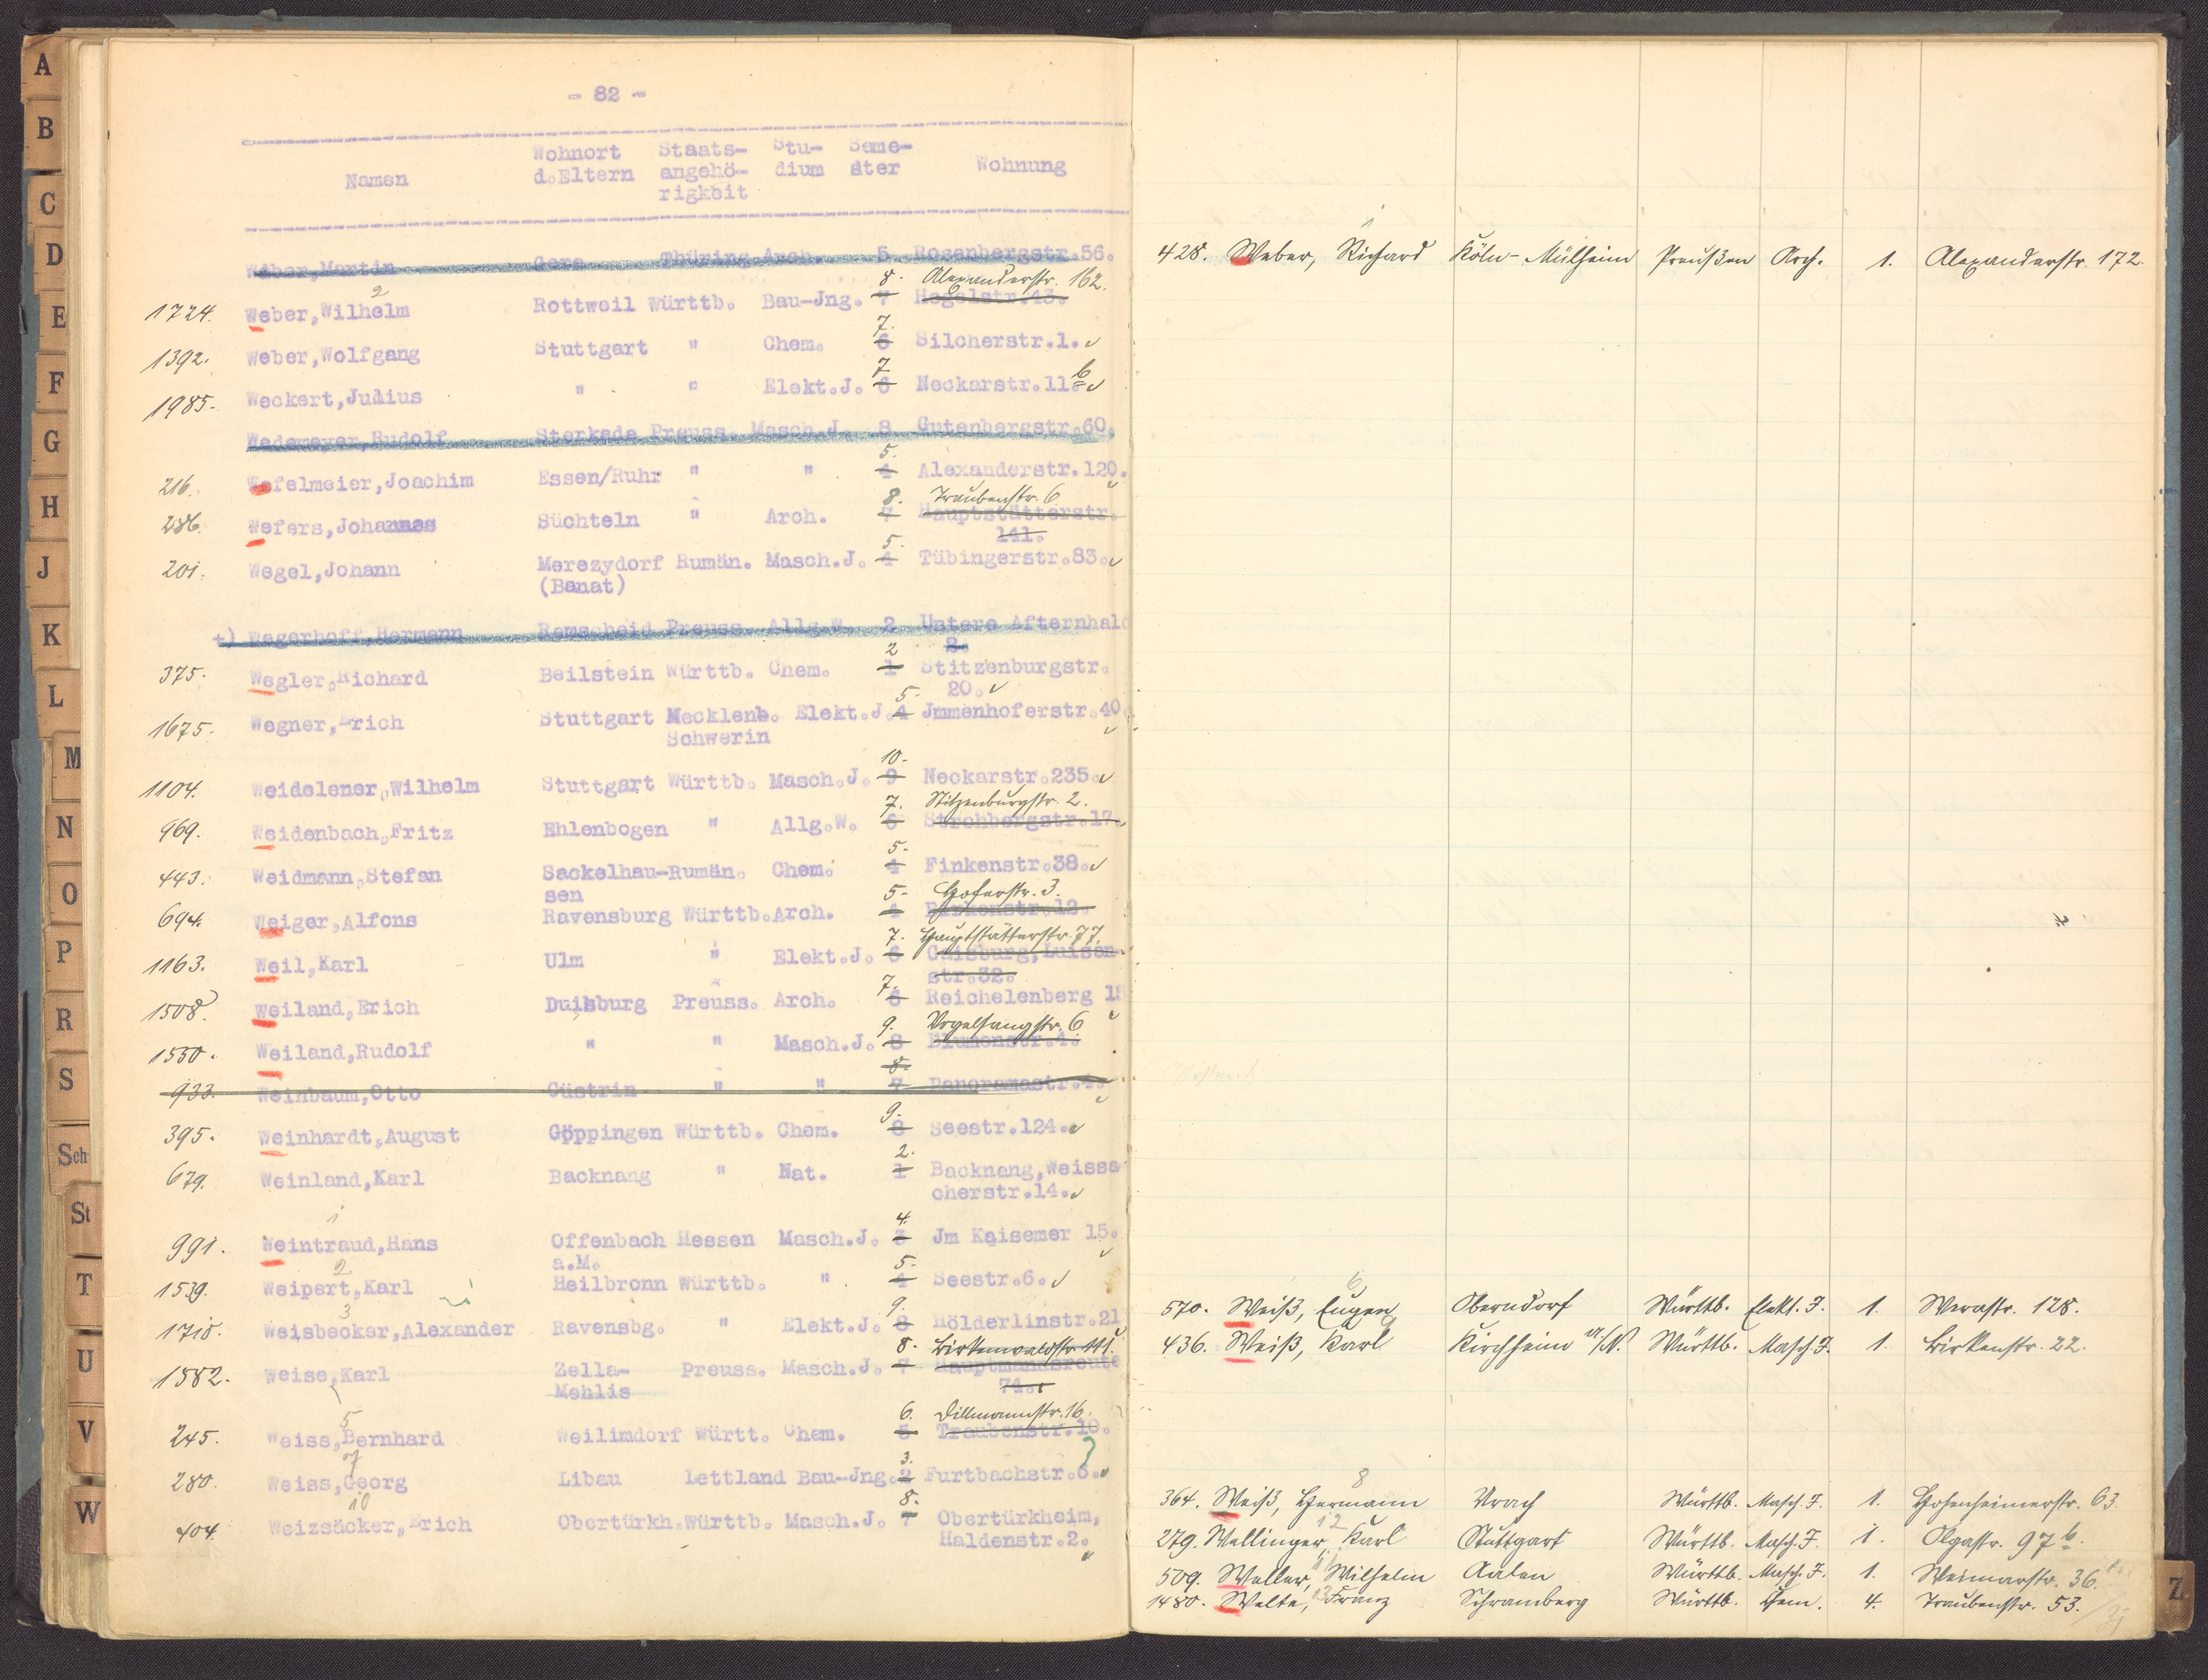 A
B
C
D
E
F
G
H
J
K
L
M
N
O
P
R
S
Sch
St
T
U
V
W
Z
- 82 -
Namen Wohnort d.Eltern Staats-angehö-rigkeit Stu-dium Seme-ster Wohnung
Weber,Martin Gera Thüring.Arch. 5 Rosenbergstr.56.
8. Alexanderstr. 162.
1724. Weber,Wilhelm 2 Rottweil Württb. Bau-Jng. 7 Hegelstr.43.
7.
1392. Weber,Wolfgang Stuttgart " Chem. 6 Silcherstr.1.
7
1985. Weckert,Julius " " Elekt.J. 6 Neckarstr.11. b
Wedemeyer,Rudolf Sterkade Preuss. Masch.J. 8 Gutenbergstr.60.
5.
216. Wefelmeier,Joachim Essen/Ruhr " " 4 Alexanderstr.120.
8. Traubenstr. 6
286. Wefers,Johannes Süchteln " Arch. 7 Hauptstätterstr.
141.
5.
201. Wegel,Johann Merezydorf Rumän. Masch.J. 4 Tübingerstr.83.
(Banat)
+) Wegerhoff,Hermann Remscheid Preuss. Allg.W. 2 Untere Afternhald
2.
2
375. Wegler,Richard Beilstein Württb. Chem. 1 Stitzenburgstr.
20.
5.
1675. Wegner,Erich Stuttgart Mecklenb. Elekt.J. 4 Jmmenhoferstr.40
Schwerin
10.
1104. Weidelener,Wilhelm Stuttgart Württb. Masch.J. 9 Neckarstr.235.
7. Stitzenburgstr. 2.
969. Weidenbach,Fritz Ehlenbogen " Allg.W. 6 Strohbergstr.17.
5.
443. Weidmann,Stefan Sackelhau-Rumän. Chem. 4 Finkenstr.38.
sen
5. Hoferstr. 3.
694. Weiger,Alfons Ravensburg Württb.Arch. 4 Birkenstr.12.
7. Hauptstätterstr. 77.
1163. Weil,Karl Ulm " Elekt.J. 6 Gaisburg,Luisen-
str.32.
7.
1508. Weiland,Erich Duisburg Preuss. Arch. 6 Reichelenberg 15
9. Vogelsangstr. 6
1550. Weiland,Rudolf " " Masch.J. 8 Blumenstr.4.
8.
933. Weinbaum,Otto Cüstrin " " 7 Panoramastr.4.
9.
395. Weinhardt,August Göppingen Württb. Chem. 8 Seestr.124.
2.
679. Weinland,Karl Backnang " Nat. 1 Backnang,Weissa
cherstr.14.
1 4.
991. Weintraud,Hans Offenbach Hessen Masch.J. 3 Jm Kaisemer 15.
a.M.
2 5.
1539. Weipert,Karl Heilbronn Württb. " 4 Seestr.6.
3 9.
1718. Weisbecker,Alexander Ravensbg. " Elekt.J. 8 Hölderlinstr.21
8. Birkenwaldstr. 141.
1582. Weise,Karl Zella- Preuss. Masch.J. 7 Hauptmannsreute
Mehlis 74.
5 6. Dillmannstr. 16.
245. Weiss,Bernhard Weilimdorf Württ. Chem. 5 Traubenstr.10.
7 3.
280. Weiss,Georg Libau Lettland Bau-Jng. 2 Furtbachstr.6.
10 8.
404. Weizsäcker,Erich Obertürkh.Württb. Masch.J. 7 Obertürkheim,
Haldenstr.2.
1
428. Weber, Richard Köln-Mülheim Preußen Arch. 1. Alexanderstr. 172.
6
570. Weiß, Eugen Oberndorf Württb. Elekt. J. 1. Werastr. 128.
436. Weiß, Karl Kirchheim a/N. Württb. Masch J. 1. Birkenstr. 22.
8
364. Weiß, Hermann Urach Württb. Masch. J. 1. Hohenheimerstr. 63.
12
279. Wellinger, Karl Stuttgart Württb. Masch. J. 1. Olgastr. 97 b.
11
509. Weller, Wilhelm Aalen Württb. Masch. J. 1. Weimarstr. 36.
13
1480. Welte, Franz Schramberg Württb. Chem. 4. Traubenstr. 53.